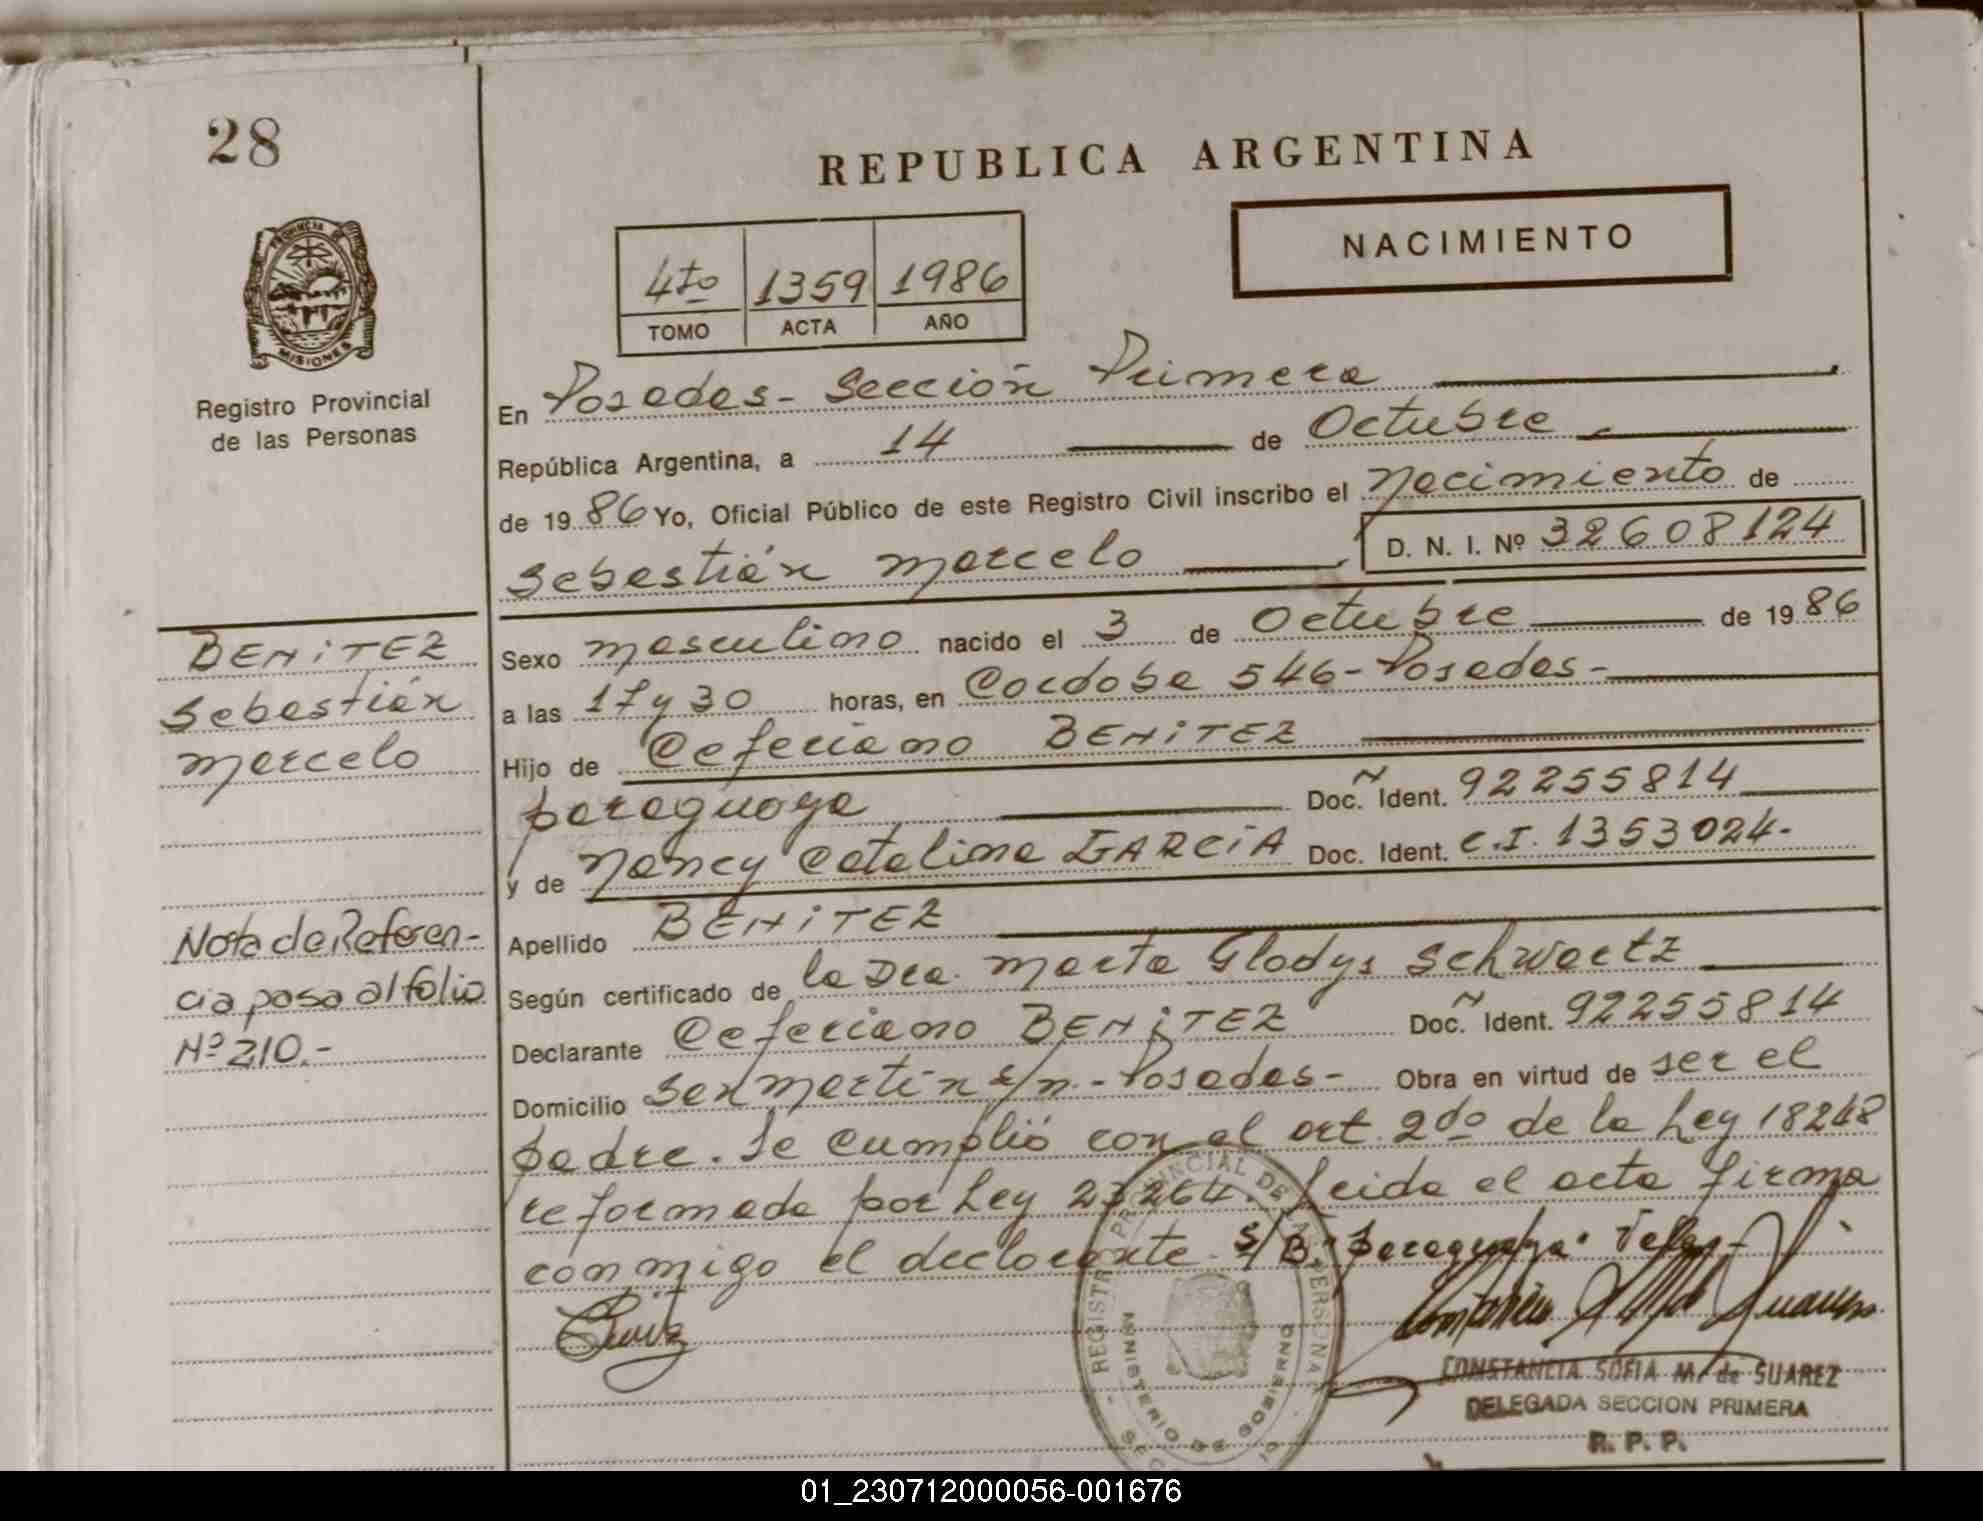 28
REPUBLICA ARGENTINA
NACIMIENTO
4to 1359 1986
TOMO ACTA AÑO
PROVINCIA DE MISIONES
Registro Provincial
de las Personas
En Posadas - Sección Primera
República Argentina, a 14 de Octubre
de 19 86 Yo, Oficial Público de este Registro Civil inscribo el Nacimiento de
Sebastián Marcelo D. N. I. Nº 32608124
BENITEZ
Sebastián
Marcelo
Nota de Referen-
cia pasa al folio
Nº 210.-
Sexo masculino nacido el 3 de Octubre de 19 86
a las 17 y 30 horas, en Cordoba 546 - Posadas -
Hijo de Ceferiano BENITEZ
paraguaya Doc. Ident. 92255814
y de Nancy Catalina GARCIA Doc. Ident. C.I. 1353024.-
Apellido BENITEZ
Según certificado de la Dra. Marta Gladys Schwartz
Declarante Ceferiano BENITEZ Doc. Ident. 92255814
Domicilio San Martín s/n. - Posadas - Obra en virtud de ser el
padre. Se cumplió con el art 2do de la Ley 18248
reformada por Ley 23264. Leida el acta firma
conmigo el declarante. S/B: paraguaya. Vale.-
REGISTRO PROVINCIAL DE LAS PERSONAS
MINISTERIO DE GOBIERNO
CONSTANCIA SOFIA M. de SUAREZ
DELEGADA SECCION PRIMERA
R. P. P.
01_230712000056-001676